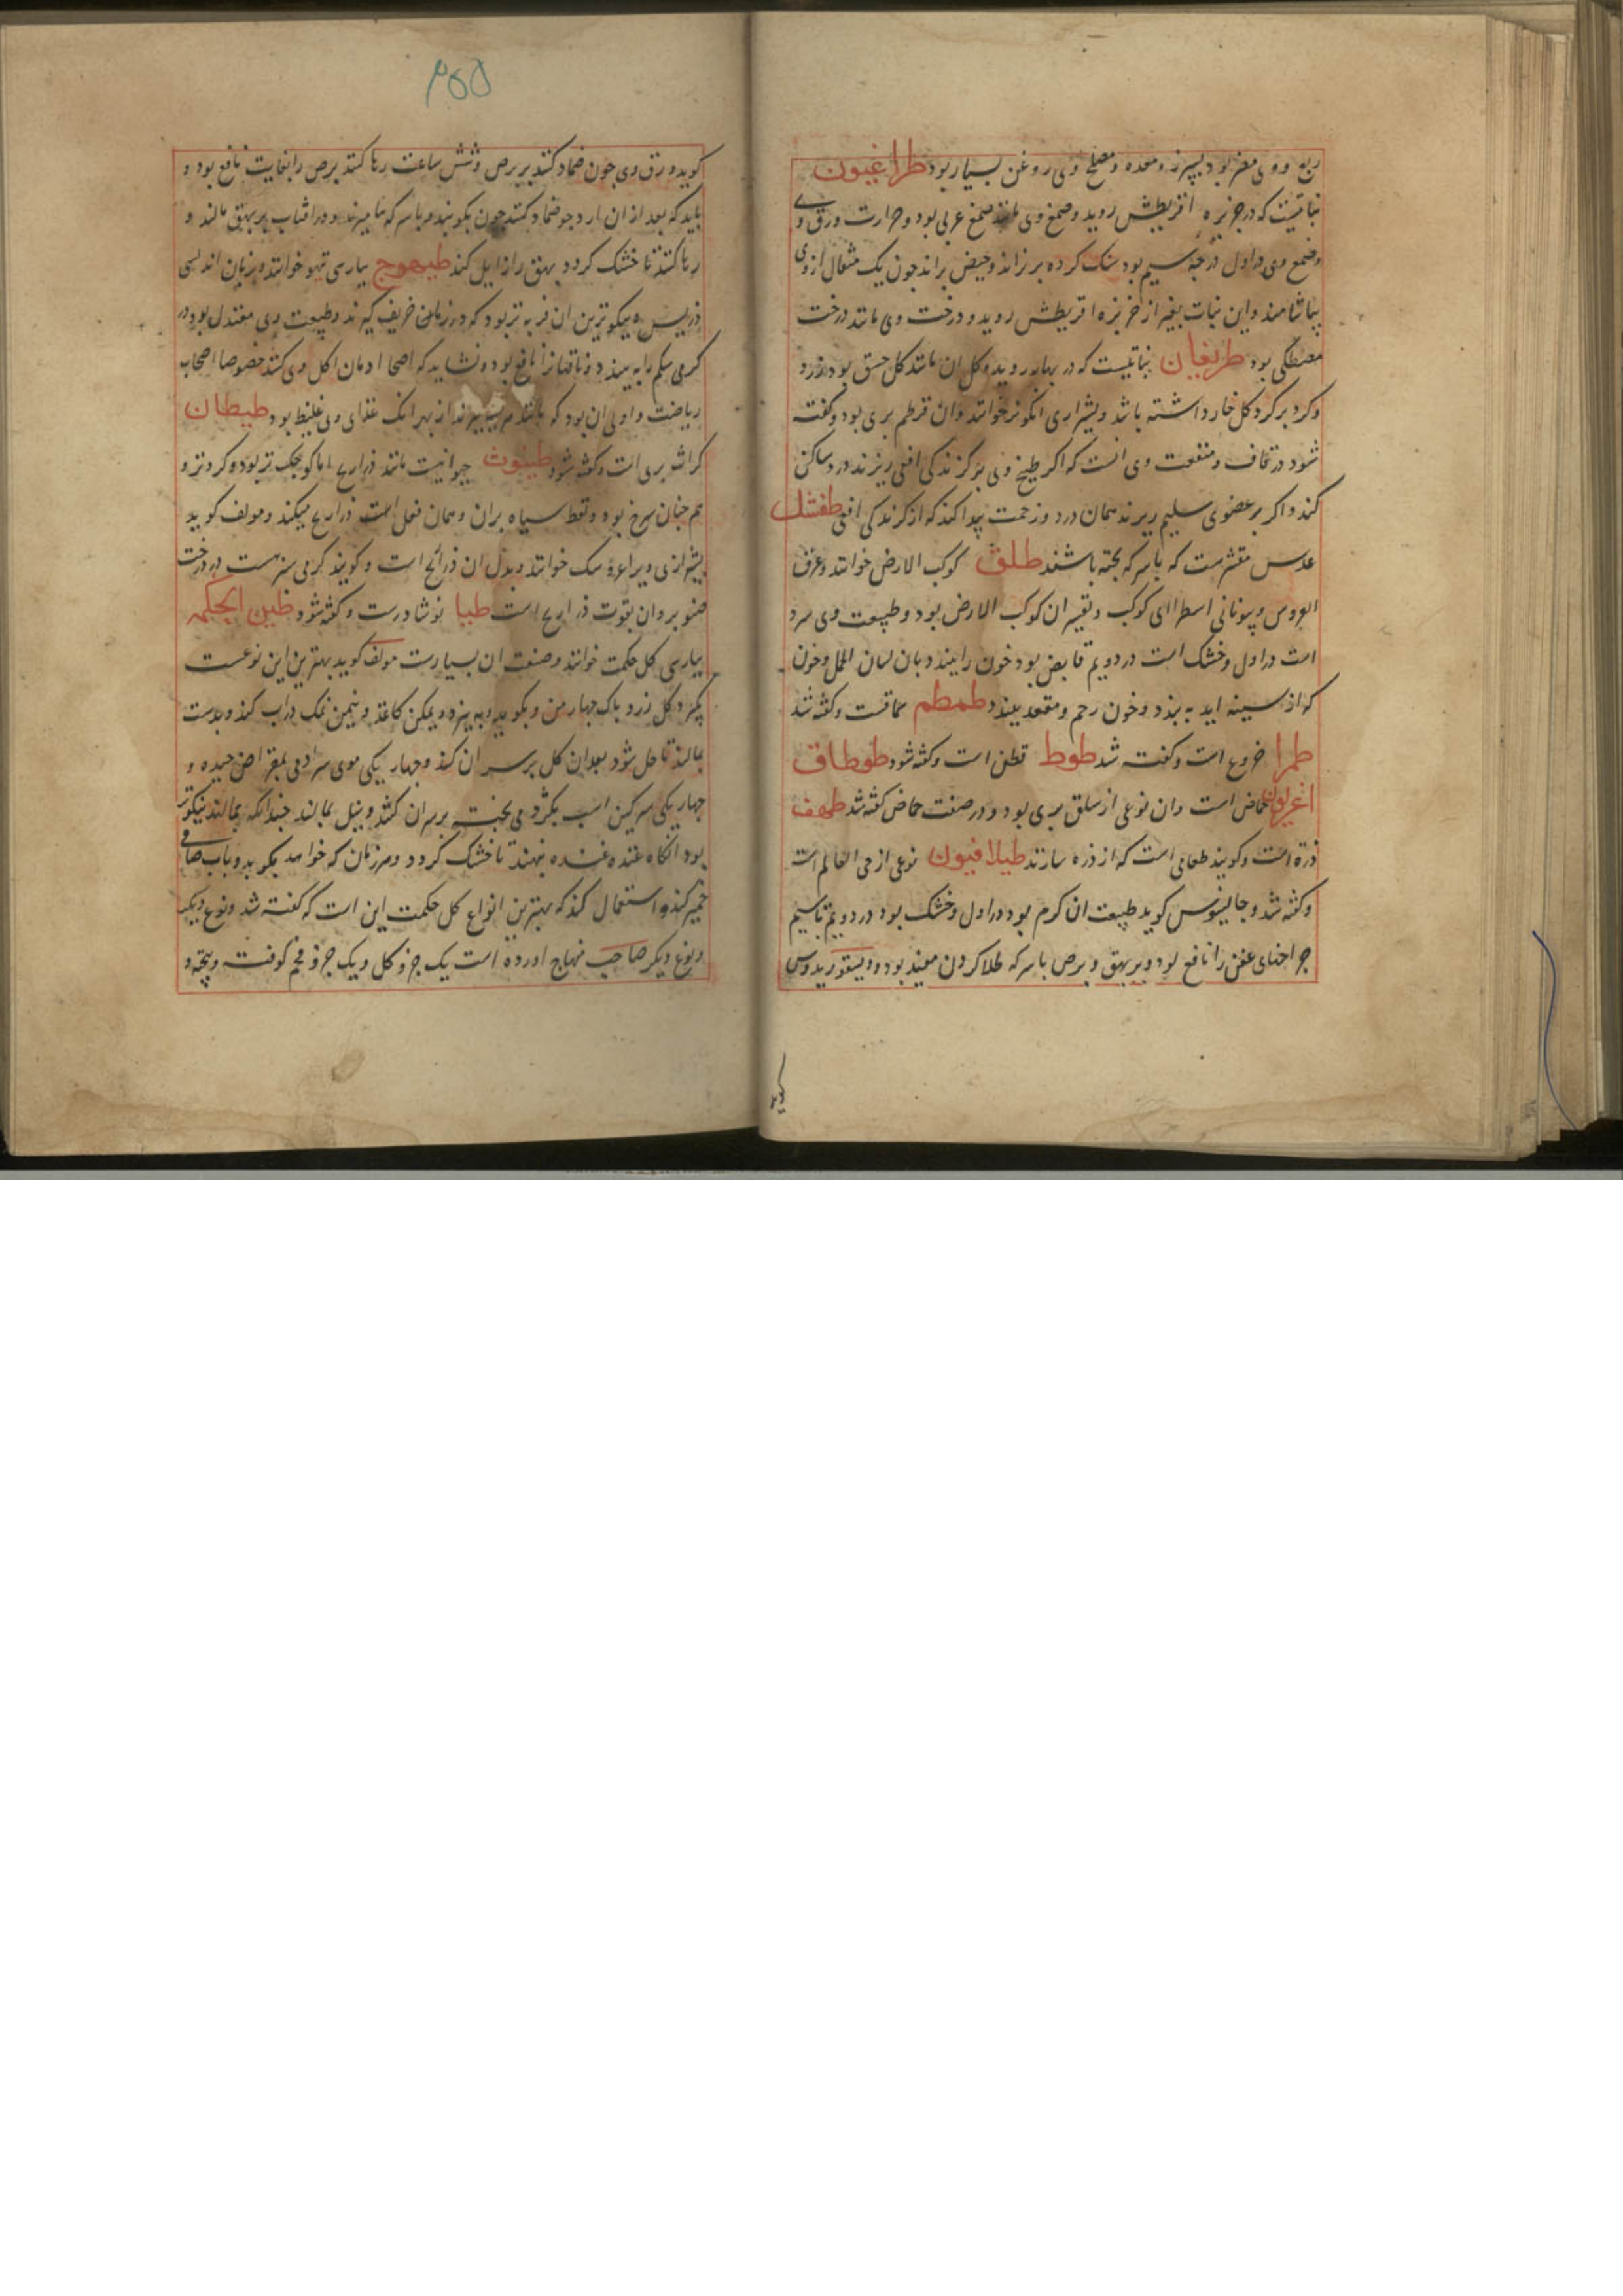 ربع و وی مضر بود بسپرز و معده و مصلح وی روغن بسیار بود طراغیون
نباتیست که در جزیره اقریطش روید و صمغ وی مانند صمغ عربی بود و حرارت ورق وی
و صمغ وی در اول درجه سیم بود سنک کرده بریزاند و حیض براند جون یک مثقال از وی
بیاشامند و این نبات بغیر از جزیره اقریطش روید و درخت وی مانند درخت
مصطکی بود طریفان نباتیست که در بهار روید و کل ان مانند کل حسق بود زرد
و کرد بر کرد کل خار داشته باشد و بشیرازی انکونرخوانند و ان قرطم بری بود و کفته
شود در قاف و منفعت وی انست که اکر طبیخ وی بر کزندکی افعی ریزند درد ساکن
کند و اکر بر عضوی سلیم ریزند همان درد و زحمت پیدا کند که از کزندکی افعی طفشل
عدس مقشرست که باسرکه پخته باشند طلق کوکب الارض خوانند و عرق
العروس و بیونانی اسطرا ای کوکب و تفسیر ان کوکب الارض بود و طبیعت وی سرد
است در اول و خشک است در دویم قابض بود خون را ببندد بان لسان الحمل و خون
که از سینه اید به بندد و خون رحم و مقعد ببندد طمطم سماقست و کفته شد
طمرا خروع است و کفته شد طوط قطن است و کفته شود طوطاق
اغریون حماض است و ان نوعی از سلق بری بود و در صفت حماض کفته شد طهف
ذرة است و کویند طعامی است که از ذره سازند طیلافیون نوعی از حی العالم است
و کفته شد و جالینوس کوید طبیعت ان کرم بود در اول و خشک بود در دویم تا سیم
جراحتهای عفن را نافع بود و بر بهق و برص باسرکه طلا کردن مفید بود و دیسقوریدوس
کوید
۲۵۵
کوید ورق وی جون ضماد کنند بر برص و شش ساعت رها کنند برص را بغایت نافع بود و
باید که بعد از ان ارد جو ضماد کنند جون بکوبند و باسرکه بیامیزند و در افتاب بر بهق مالند و
رها کنند تا خشک کردد بهق را زایل کند طیهوج بپارسی تیهو خوانند و بزبان اندلسی
ذریس و نیکوترین ان فربه تر بود که در زمان خریف کیرند و طبیعت وی معتدل بود در
کرمی شکم را به بندد و ناقهانرا نافع بود و نشاید که اصحا ادمان اکل وی کنند خصوصا اصحاب
ریاضت و اولی ان بود که از بهر انک غذای وی غلیظ بود طیطان
کراث بری است و کفته شود طیبوث حیوانیست مانند ذراریح اما کوجک تر بود و کرد تر و
هم جنان سرخ بود و نقط سیاه بران و همان فعل است ذراریح میکند و مولف کوید
بشیرازی ویرا سک خوانند و بدل ان ذرائح است و کویند کرمی سبز هست در درخت
صنوبر و ان بقوت ذراریح است طیبا نوشادرست و کفته شود طین الحکمه
بپارسی کل حکمت خوانند و صنعت ان بسیارست مولف کوید بهترین این نوعست
بکیرد کل زرد پاک جهار من و بکوبد و به بیزد و یکمن کاغذ و نیمن نمک در اب کند و بدست
بمالند تا حل شود بعد ان کل بر سر ان کند و جهار یکی موی سر ادمی بمقراض جیده و
جهار یکی سرکین اسب بر سر ان کنند و بنیل بمالند جندانکه بمالند نیکوتر
بود انکاه غنده غنده بنهند تا خشک کردد و هر زمان که خواهد بکوبد و باب صافی
خمیر کند و استعمال کند که بهترین انواع کل حکمت این است که کفته شد و نوع دیکر
و نوع دیکر صاحب منهاج اورده است یک جزو کل و یک جزو فحم کوفته و بیخته و